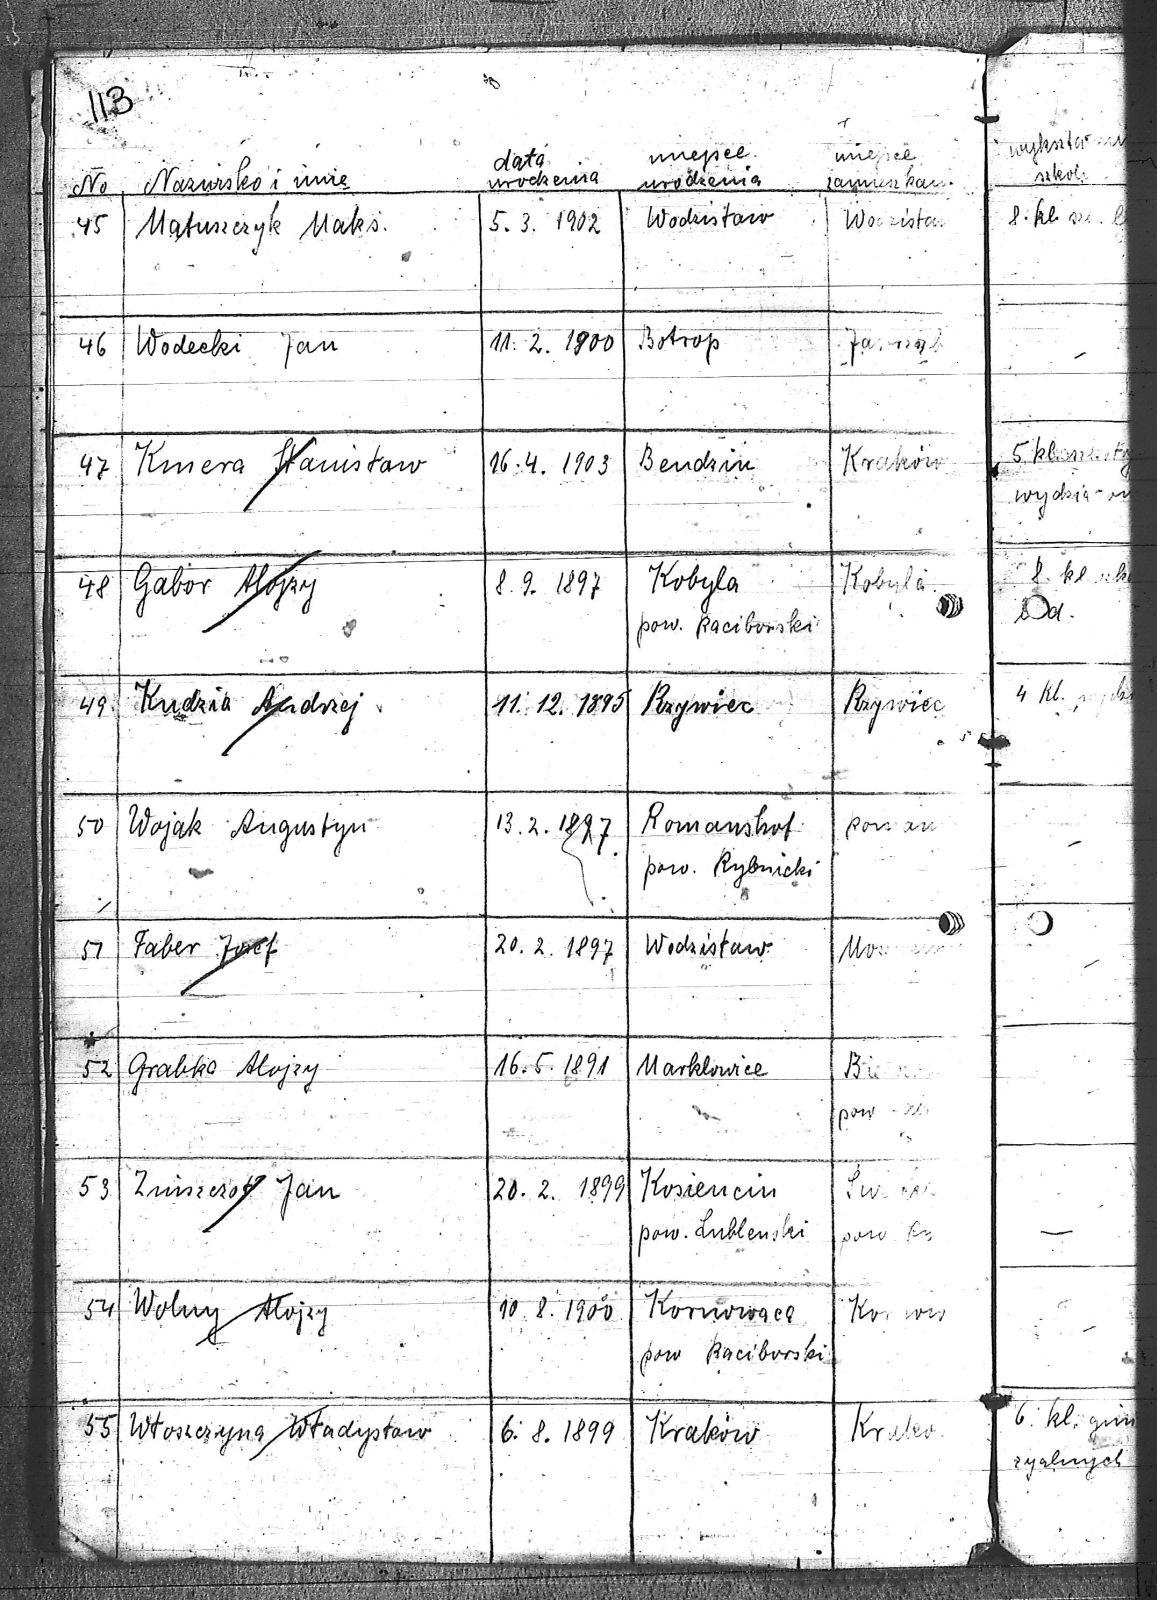 113
No Nazwisko i imię data urodzenia miejsce urodzenia miejsce
45 Matuszczyk Maks. 5. 3. 1902 Wodzisław 8. kl.
46 Wodecki Jan 11. 2. 1900 Botrop -
47 Kmera Stanisław 16. 4. 1903 Bendzin Kraków 5 kl.
48 Gabor Alojzy 8. 9. 1897 Kobyla Kobyla 8. kl
pow. Raciborski
49 Kudzia Andrzej 11. 12. 1895 Rzywiec Rzywiec 4 kl.
50 Wojak Augustyn 13. 2. 1897. Romanshof -
pow. Rybnicki
51 Faber Josef 20. 2. 1897 Wodzisław -
52 Grabko Alojzy 16. 5. 1891 Marklowice
pow
53 Zniszczoł Jan 20. 2. 1899 Kosiencin
pow. Lublenski pow. —
54 Wolny Alojzy 10. 8. 1900 Kornowaca -
pow Raciborski
55 Włoszczyna Władysław 6. 8. 1899 Kraków 6. kl.